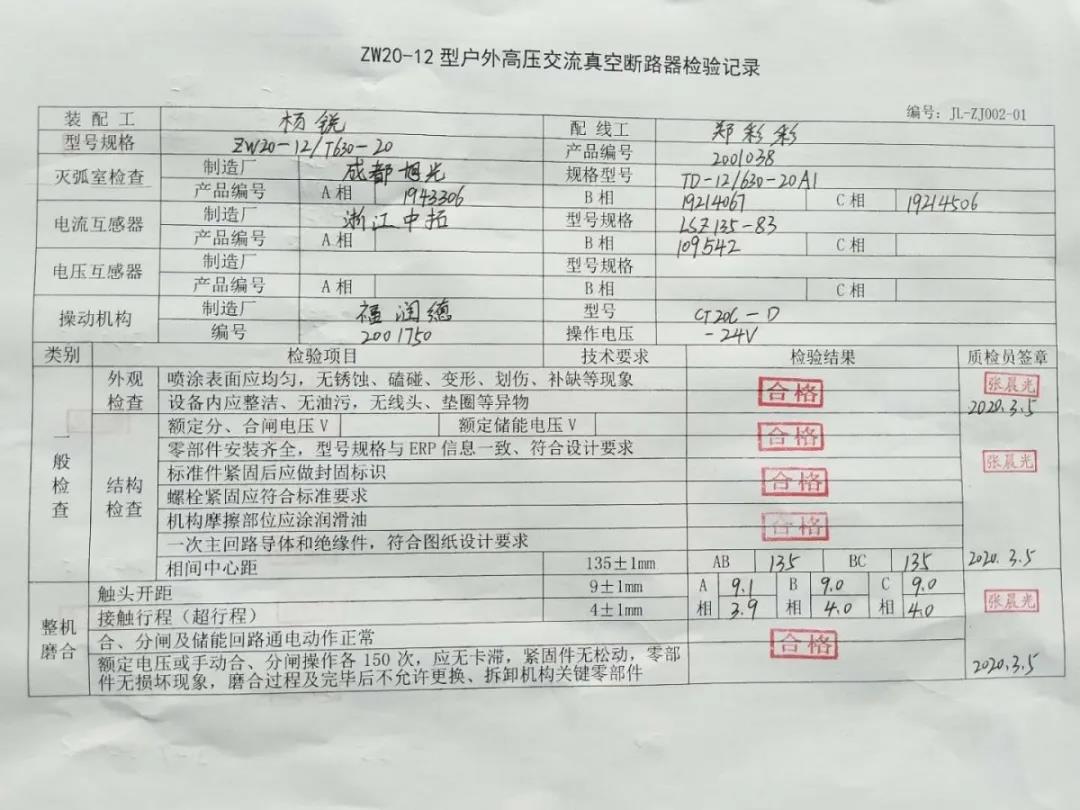 ZW20-12 型户外高压交流真空断路器检验记录
编号：JL-ZJ002-01
装 配 工 杨锐 配 线工 郑彩彩
型号规格 ZW20-12/T630-20 产品编号 2001038
灭弧室检查 制造厂 成都旭光 规格型号 TD-12/630-20A1
产品编号 A 相 1943306 B 相 19214067 C 相 19214506
电流互感器 制造厂 浙江中拓 型号规格 LSZ135-83
产品编号 A 相 B 相 109542 C 相
电压互感器 制造厂 型号规格
产品编号 A 相 B 相 C 相
操动机构 制造厂 福润德 型号 CT20C-D
编号 2001750 操作电压 -24V
类别 检验项目 技术要求 检验结果 质检员签章
一般检查 外观检查 喷涂表面应均匀，无锈蚀、磕碰、变形、划伤、补缺等现象 合格 张晨光
设备内应整洁、无油污，无线头、垫圈等异物 2020.3.5
结构检查 额定分、合闸电压 V 额定储能电压 V 合格
零部件安装齐全，型号规格与 ERP 信息一致、符合设计要求
标准件紧固后应做封固标识 合格 张晨光
螺栓紧固应符合标准要求
机构摩擦部位应涂润滑油 合格
一次主回路导体和绝缘件，符合图纸设计要求
相间中心距 135±1mm AB 135 BC 135 2020.3.5
整机磨合 触头开距 9±1mm A相 9.1 B相 9.0 C相 9.0 张晨光
接触行程（超行程） 4±1mm 3.9 4.0 4.0
合、分闸及储能回路通电动作正常 合格
额定电压或手动合、分闸操作各 150 次，应无卡滞，紧固件无松动，零部
件无损坏现象，磨合过程及完毕后不允许更换、拆卸机构关键零部件 2020.3.5